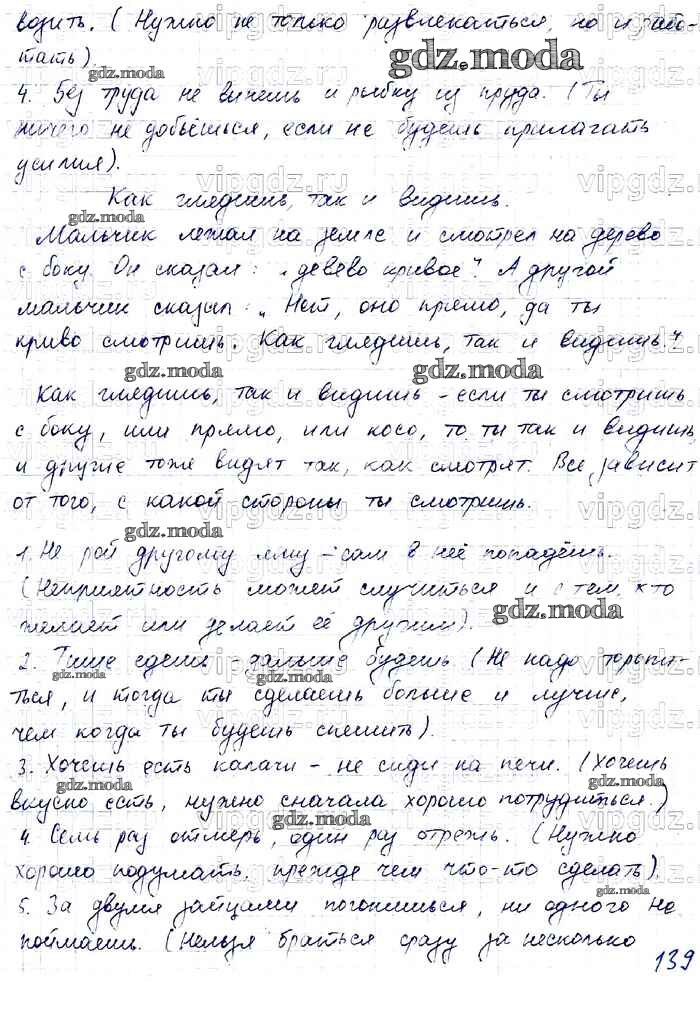 возить. (Нужно не только развлекаться, но и рабо-
тать).
4. Без труда не вынешь и рыбку из пруда. (Ты
ничего не добьёшься, если не будешь прилагать
усилия).
Как глядишь, так и видишь.
Мальчик лежал на земле и смотрел на дерево
с боку. Он сказал: „девево кривое". А другой
мальчик сказал: „Нет, оно прямо, да ты
криво смотришь. Как глядишь, так и видишь."
Как глядишь, так и видишь – если ты смотришь
с боку, или прямо, или косо, то ты так и видишь
и другие тоже видят так, как смотрят. Все зависит
от того, с какой стороны ты смотришь.
1. Не рой другому яму – сам в неё попадёшь.
(Неприятность может случиться и с тем, кто
желает или делает её другим).
2. Тише едешь – дальше будешь (Не надо торопи-
ться, и тогда ты сделаешь больше и лучше,
чем когда ты будешь спешить).
3. Хочешь есть калачи – не сиди на печи. (Хочешь
вкусно есть, нужно сначала хорошо потрудиться.)
4. Семь раз отмерь, один раз отрежь. (Нужно
хорошо подумать, прежде чем что-то сделать).
5. За двумя зайцами погонишься, ни одного не
поймаешь. (Нельзя браться сразу за несколько
139
gdz.moda
vipgdz.ru